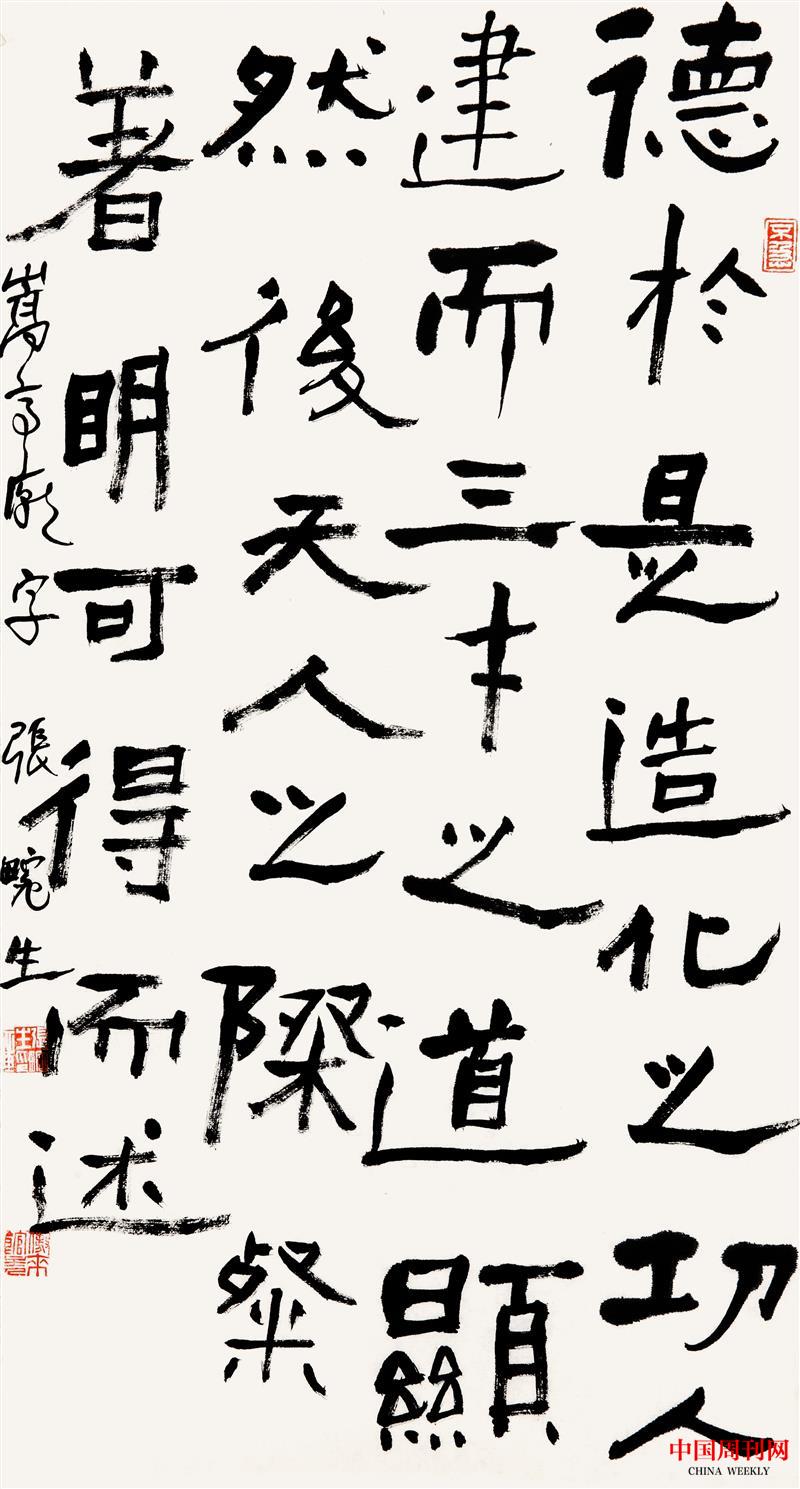 德於是造化之功人
建而三才之道顯
然後天人之際粲
著明可得而述
嵩高廟字 張畹生
中国周刊网
CHINA WEEKLY